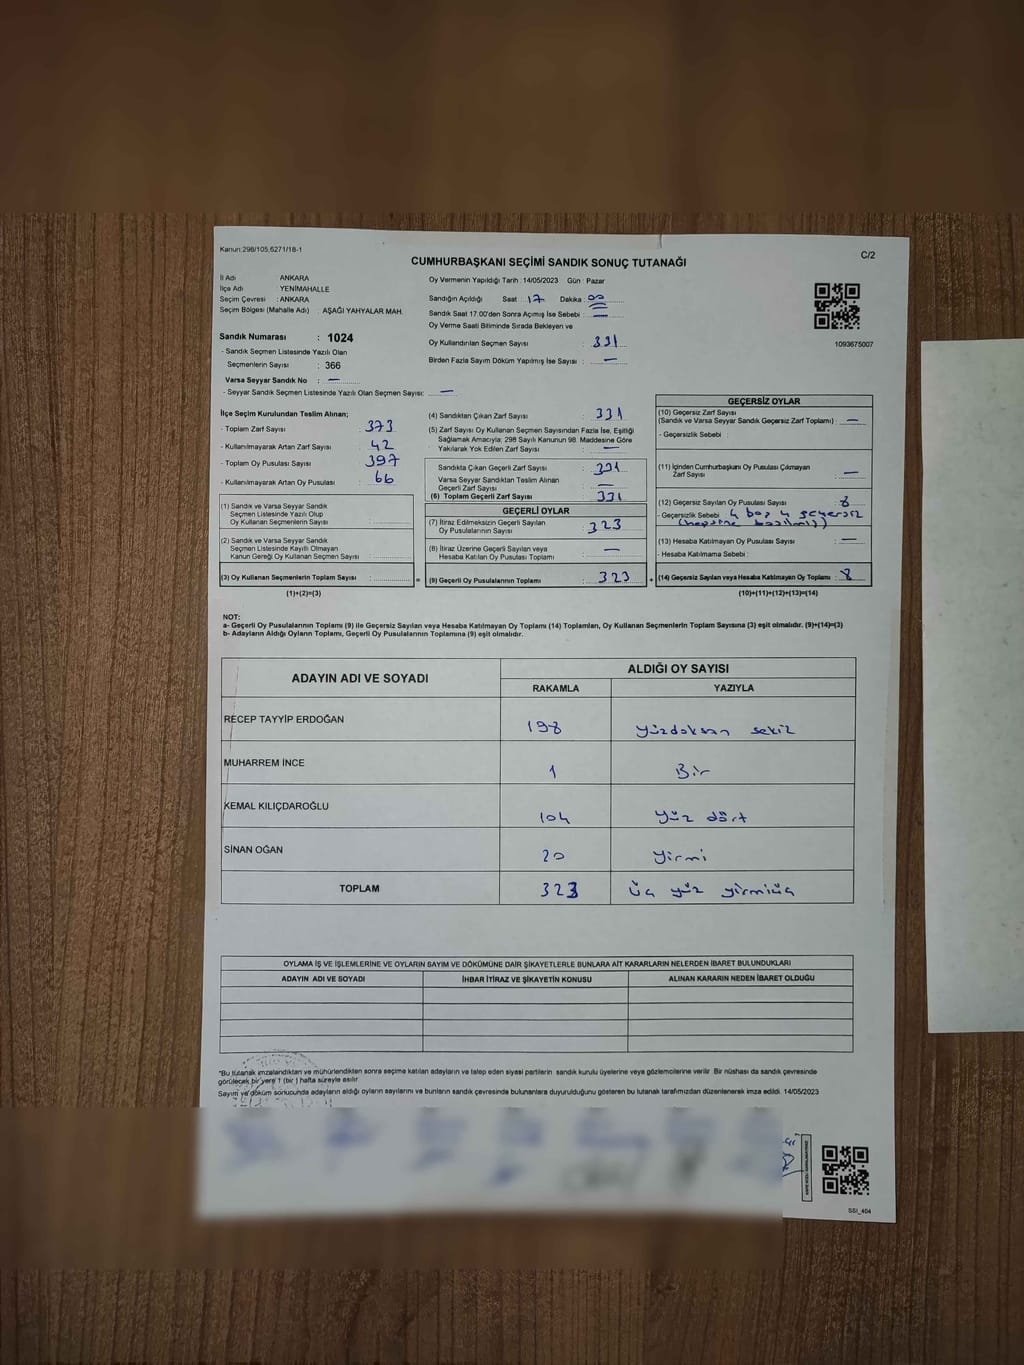 Kanun:298/105,6271/18-1
C/2
CUMHURBAŞKANI SEÇİMİ SANDIK SONUÇ TUTANAĞI
İl Adı ANKARA
İlçe Adı YENİMAHALLE
Seçim Çevresi : ANKARA
Seçim Bölgesi (Mahalle Adı) . AŞAĞI YAHYALAR MAH.
Sandık Numarası : 1024
- Sandık Seçmen Listesinde Yazılı Olan
Seçmenlerin Sayısı : 366
Varsa Seyyar Sandık No : —
- Seyyar Sandık Seçmen Listesinde Yazılı Olan Seçmen Sayısı: —
Oy Vermenin Yapıldığı Tarih : 14/05/2023 Gün : Pazar
Sandığın Açıldığı Saat : 17 Dakika : 00
Sandık Saat 17.00'den Sonra Açımış İse Sebebi : —
Oy Verme Saati Bitiminde Sırada Bekleyen ve
Oy Kullandırılan Seçmen Sayısı : 331
Birden Fazla Sayım Döküm Yapılmış İse Sayısı : —
1093675007
İlçe Seçim Kurulundan Teslim Alınan;
- Toplam Zarf Sayısı : 373
- Kullanılmayarak Artan Zarf Sayısı : 42
- Toplam Oy Pusulası Sayısı : 397
- Kullanılmayarak Artan Oy Pusulası : 66
(1) Sandık ve Varsa Seyyar Sandık
Seçmen Listesinde Yazılı Olup
Oy Kullanan Seçmenlerin Sayısı :
(2) Sandık ve Varsa Seyyar Sandık
Seçmen Listesinde Kayıtlı Olmayan
Kanun Gereği Oy Kullanan Seçmen Sayısı :
(3) Oy Kullanan Seçmenlerin Toplam Sayısı : =
(1)+(2)=(3)
(4) Sandıktan Çıkan Zarf Sayısı : 331
(5) Zarf Sayısı Oy Kullanan Seçmen Sayısından Fazla İse, Eşitliği
Sağlamak Amacıyla; 298 Sayılı Kanunun 98. Maddesine Göre
Yakılarak Yok Edilen Zarf Sayısı : —
Sandıkta Çıkan Geçerli Zarf Sayısı : 331
Varsa Seyyar Sandıktan Teslim Alınan
Geçerli Zarf Sayısı : —
(6) Toplam Geçerli Zarf Sayısı : 331
GEÇERLİ OYLAR
(7) İtiraz Edilmeksizin Geçerli Sayılan
Oy Pusulalarının Sayısı : 323
(8) İtiraz Üzerine Geçerli Sayılan veya
Hesaba Katılan Oy Pusulası Toplamı : —
(9) Geçerli Oy Pusulalarının Toplamı : 323 +
GEÇERSİZ OYLAR
(10) Geçersiz Zarf Sayısı
(Sandık ve Varsa Seyyar Sandık Geçersiz Zarf Toplamı) : —
- Geçersizlik Sebebi :
(11) İçinden Cumhurbaşkanı Oy Pusulası Çıkmayan
Zarf Sayısı : —
(12) Geçersiz Sayılan Oy Pusulası Sayısı : 8
- Geçersizlik Sebebi 4 boş 4 geçersiz
(hepsine basılmış)
(13) Hesaba Katılmayan Oy Pusulası Sayısı : —
- Hesaba Katılmama Sebebi :
(14) Geçersiz Sayılan veya Hesaba Katılmayan Oy Toplamı : 8
(10)+(11)+(12)+(13)=(14)
NOT:
a- Geçerli Oy Pusulalarının Toplamı (9) ile Geçersiz Sayılan veya Hesaba Katılmayan Oy Toplamı (14) Toplamları, Oy Kullanan Seçmenlerin Toplam Sayısına (3) eşit olmalıdır. (9)+(14)=(3)
b- Adayların Aldığı Oyların Toplamı, Geçerli Oy Pusulalarının Toplamına (9) eşit olmalıdır.
ADAYIN ADI VE SOYADI ALDIĞI OY SAYISI
RAKAMLA YAZIYLA
RECEP TAYYİP ERDOĞAN 198 yüzdoksan sekiz
MUHARREM İNCE 1 Bir
KEMAL KILIÇDAROĞLU 104 yüz dört
SİNAN OĞAN 20 yirmi
TOPLAM 323 üç yüz yirmiüç
OYLAMA İŞ VE İŞLEMLERİNE VE OYLARIN SAYIM VE DÖKÜMÜNE DAİR ŞİKAYETLERLE BUNLARA AİT KARARLARIN NELERDEN İBARET BULUNDUKLARI
ADAYIN ADI VE SOYADI İHBAR İTİRAZ VE ŞİKAYETİN KONUSU ALINAN KARARIN NEDEN İBARET OLDUĞU
*Bu tutanak imzalandıktan ve mühürlendikten sonra seçime katılan adayların ve talep eden siyasi partilerin sandık kurulu üyelerine veya gözlemcilerine verilir Bir nüshası da sandık çevresinde
görülecek bir yere 1 (bir) hafta süreyle asılır
Sayım ve döküm sonucunda adayların aldığı oyların sayılarını ve bunların sandık çevresinde bulunanlara duyurulduğunu gösteren bu tutanak tarafımızdan düzenlenerek imza edildi. 14/05/2023
SSI_404